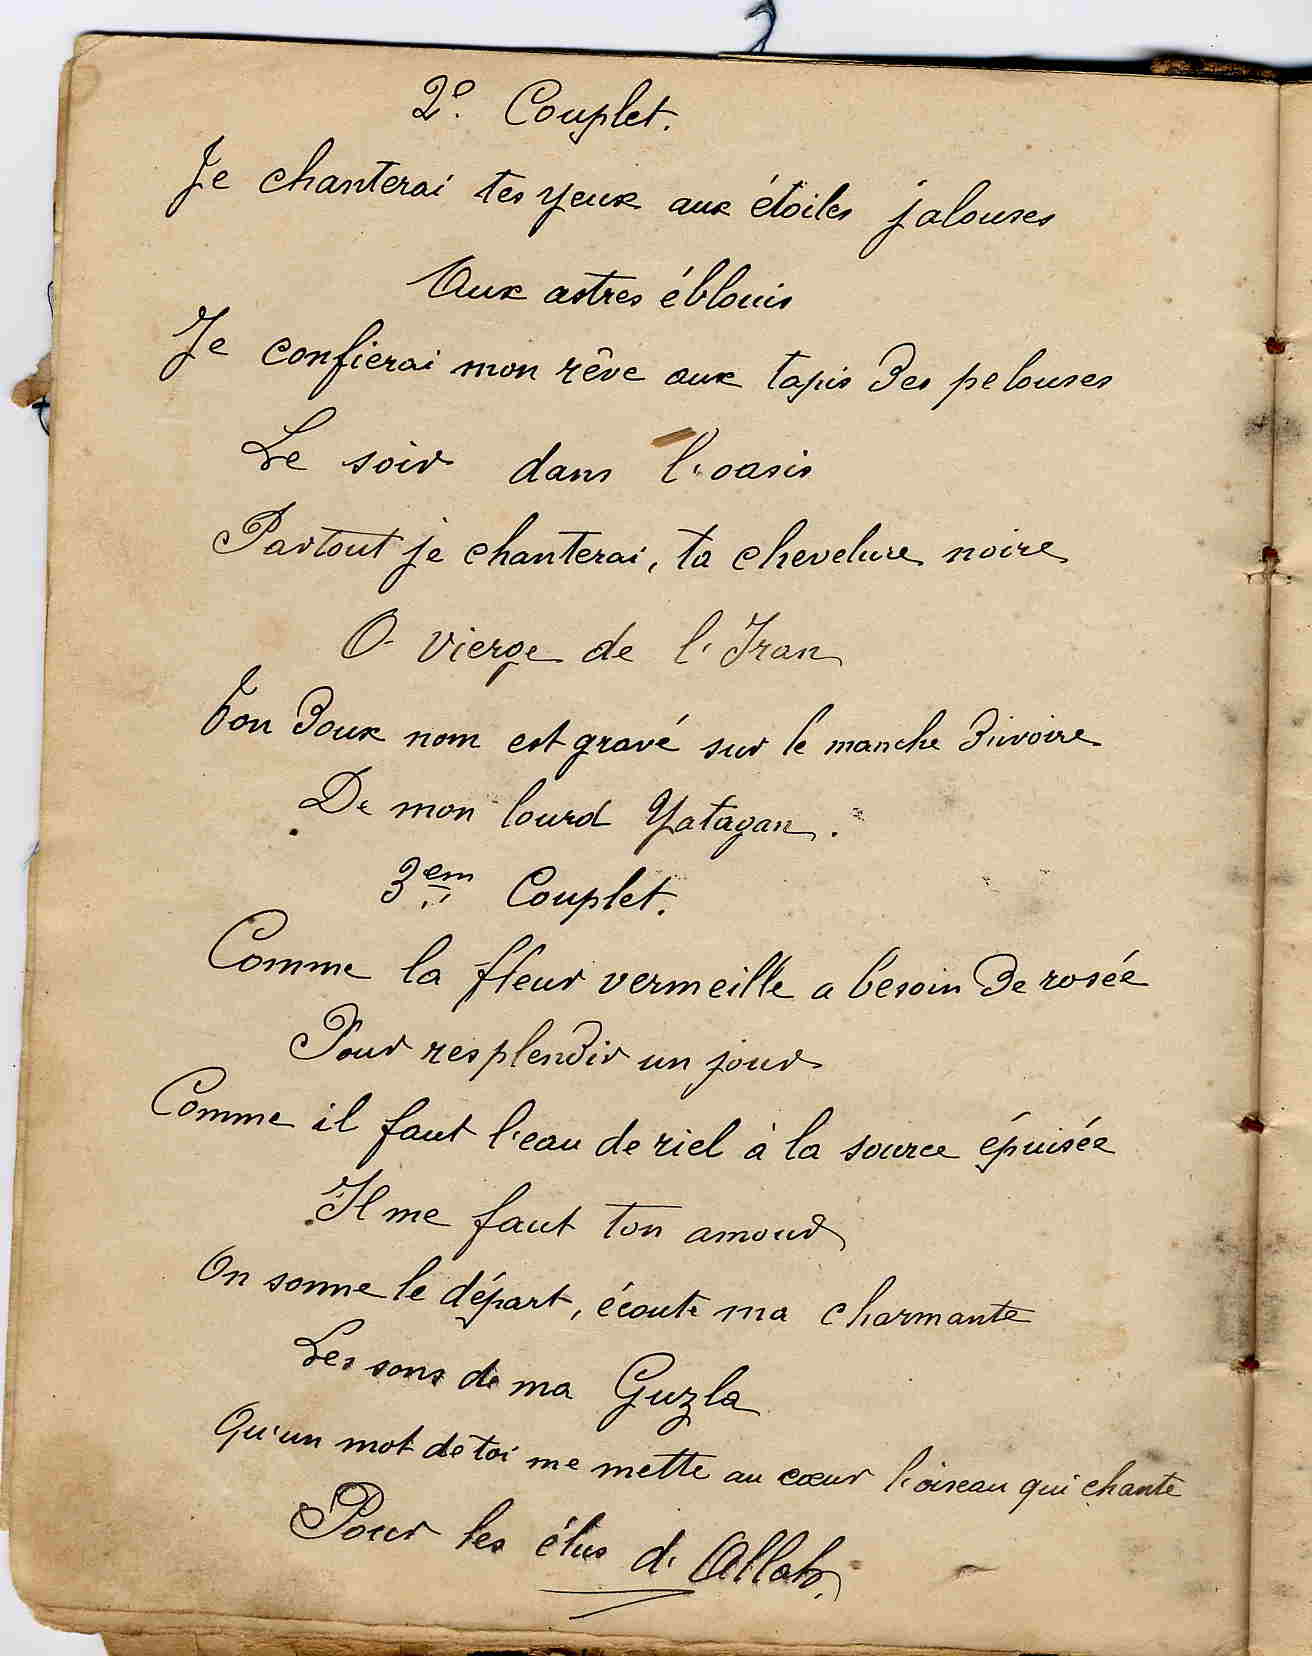 2e. Couplet.
Je chanterai tes yeux aux étoiles jalouses
Aux astres éblouis
Je confierai mon rêve aux tapis des pelouses
Le soir dans l'oasis
Partout je chanterai, ta chevelure noire
O vierge de l'Iran
Ton doux nom est gravé sur le manche d'ivoire
De mon lourd Yatagan.
3em Couplet.
Comme la fleur vermeille a besoin de rosée
Pour resplendir un jour
Comme il faut l'eau de ciel à la source épuisée
Il me faut ton amour
On sonne le départ, écoute ma charmante
Les sons de ma Guzla
Qu'un mot de toi me mette au cœur l'oiseau qui chante
Pour les élus d'Allah.